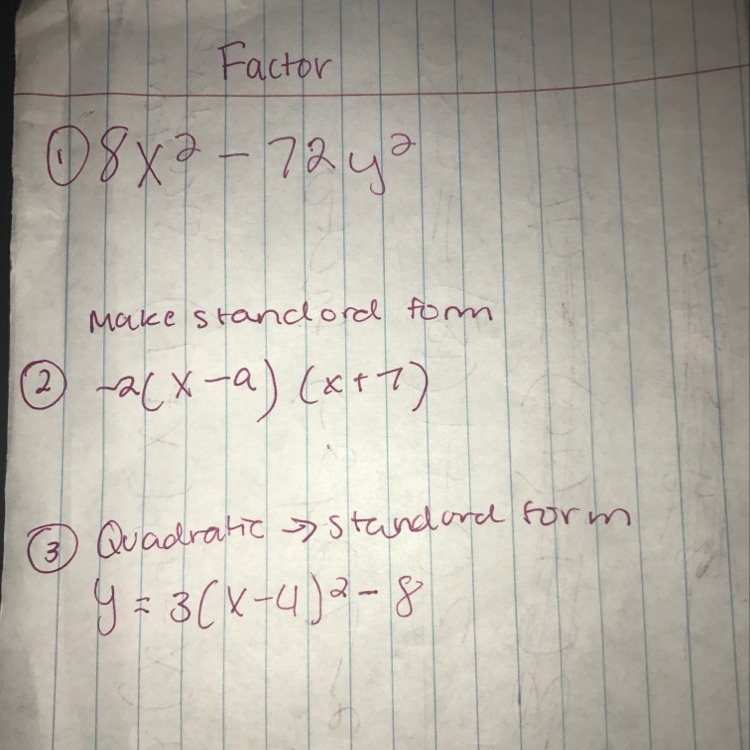 Factor
① 8x² - 72y²
Make standard form
② -2(x-a) (x+7)
③ Quadratic → standard form
y = 3(x-4)² - 8